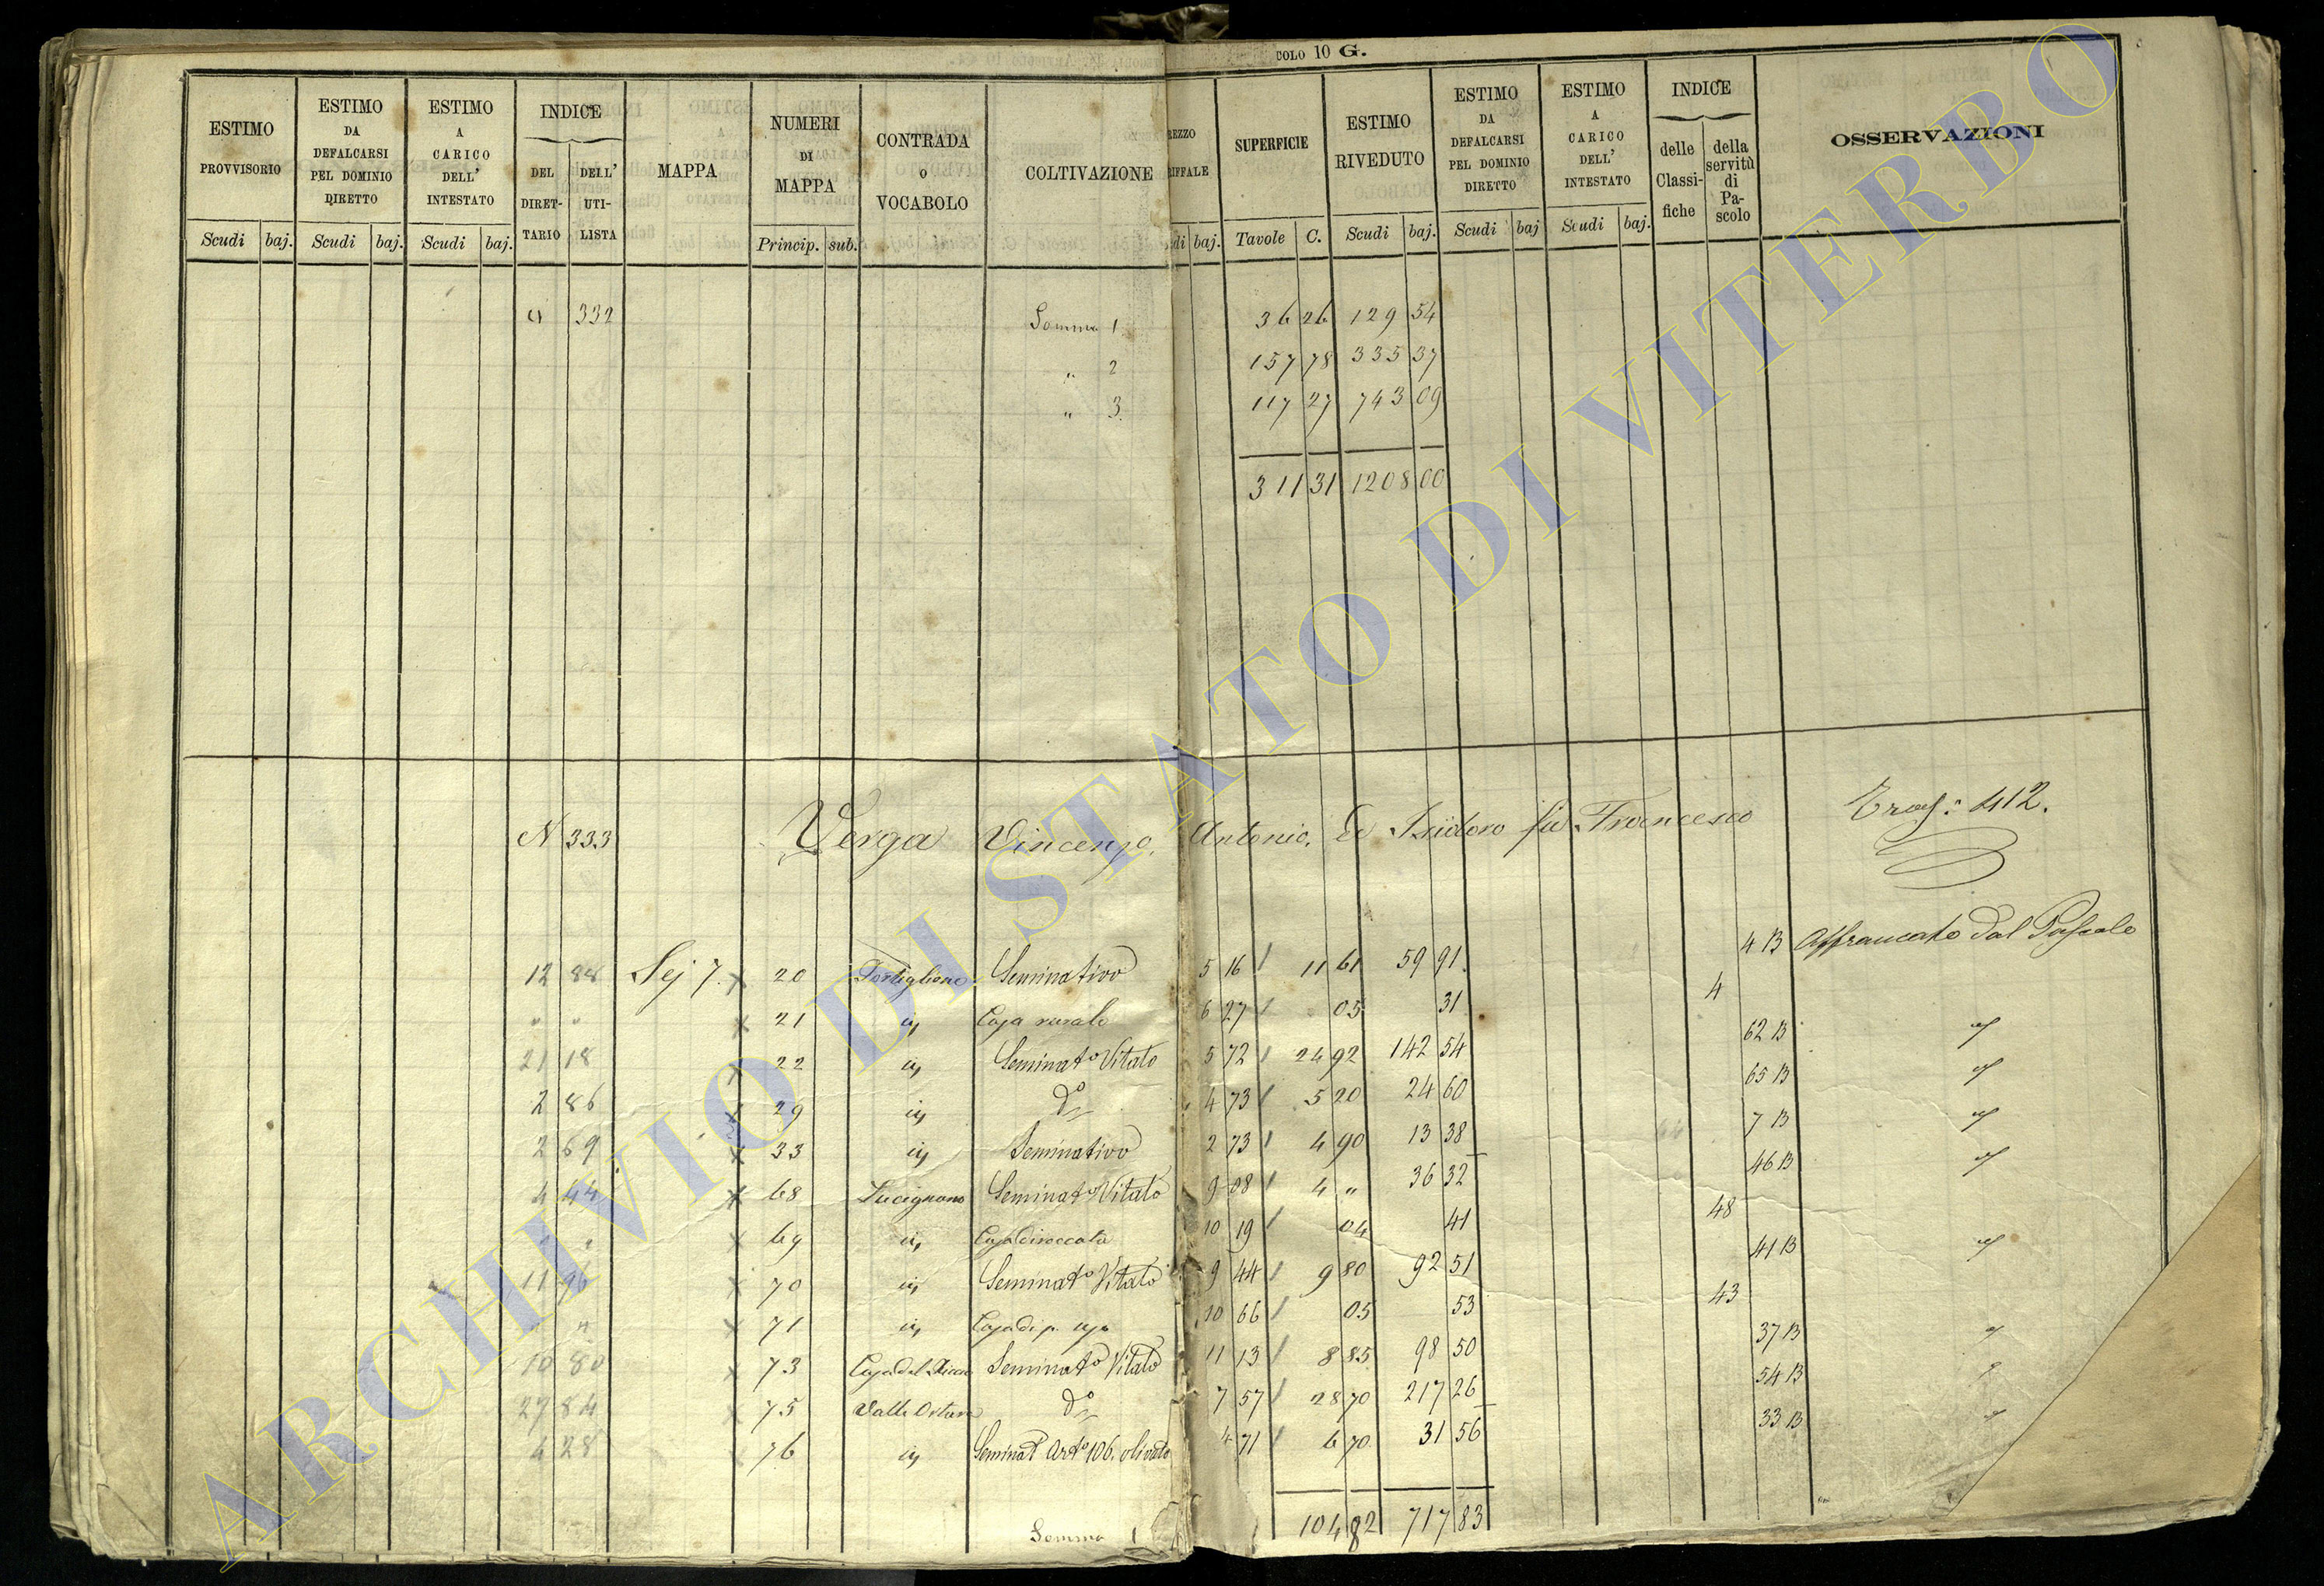 COLO 10 G.
ESTIMO PROVVISORIO | ESTIMO DA DEFALCARSI PEL DOMINIO DIRETTO | ESTIMO A CARICO DELL' INTESTATO | INDICE DEL DIRETTARIO | DELL' UTILISTA | MAPPA | NUMERI DI MAPPA | CONTRADA O VOCABOLO | COLTIVAZIONE | REZZO RIFFALE | SUPERFICIE | ESTIMO RIVEDUTO | ESTIMO DA DEFALCARSI PEL DOMINIO DIRETTO | ESTIMO A CARICO DELL' INTESTATO | INDICE delle Classifiche | della servitù di Pascolo | OSSERVAZIONI
Scudi baj. | Scudi baj. | Scudi baj. | Princip. sub. | di baj. | Tavole C. | Scudi baj. | Scudi baj | Scudi baj.
332 Somma 1 36 26 129 54
" 2 157 78 335 37
" 3. 117 27 743 09
311 31 1208 00
N 333 Verga Vincenzo, Antonio, Ed Isidoro fu Francesco Trasf: 412.
12 88 Sez 7. x 20 Tortiglione Seminativo 5 16 11 61 59 91. 4 B Affrancato dal Pascolo
" " x 21 id Casa rurale 6 27 05 31 4
21 18 x 22 id Seminato Vitato 5 72 24 92 142 54 62 B id
2 86 x 29 id do 4 73 5 20 24 60 65 B id
2 69 x 33 id Seminativo 2 73 4 90 13 38 7 B id
4 44 x 68 Lucignano Seminato Vitato 9 08 4 " 36 32 46 B id
" x 69 id Casa diroccata 10 19 04 41 48
11 96 x 70 id Seminato Vitato 9 44 9 80 92 51 41 B id
" x 71 id Casa di p. uso 10 66 05 53 43
10 80 x 73 Casa del Seminato Vitato 11 13 8 85 98 50 37 B id
27 84 x 75 Valle do 7 57 28 70 217 26 54 B
4 28 76 id Seminat Arto 106. olivato 4 71 6 70 31 56 33 B id
Somma 1 104 82 717 83
ARCHIVIO DI STATO DI VITERBO